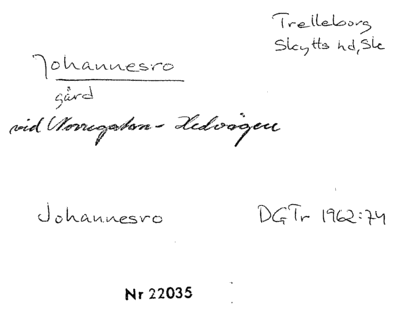 Trelleborg
Skytts hd, Sk
Johannesro
gård
vid Norregatan - Hedvägen
Johannesro DGTr 1962:74
Nr 22035